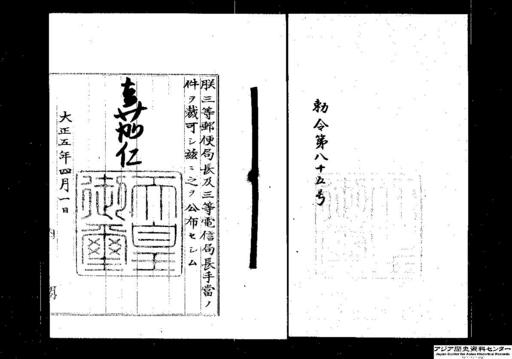 勅令第八十五号
朕三等郵便局長及三等電信局長手當ノ
件ヲ裁可シ茲ニ之ヲ公布セシム
嘉仁
大正五年四月一日
天皇
御璽
アジア歴史資料センター
Japan Center for Asian Historical Records